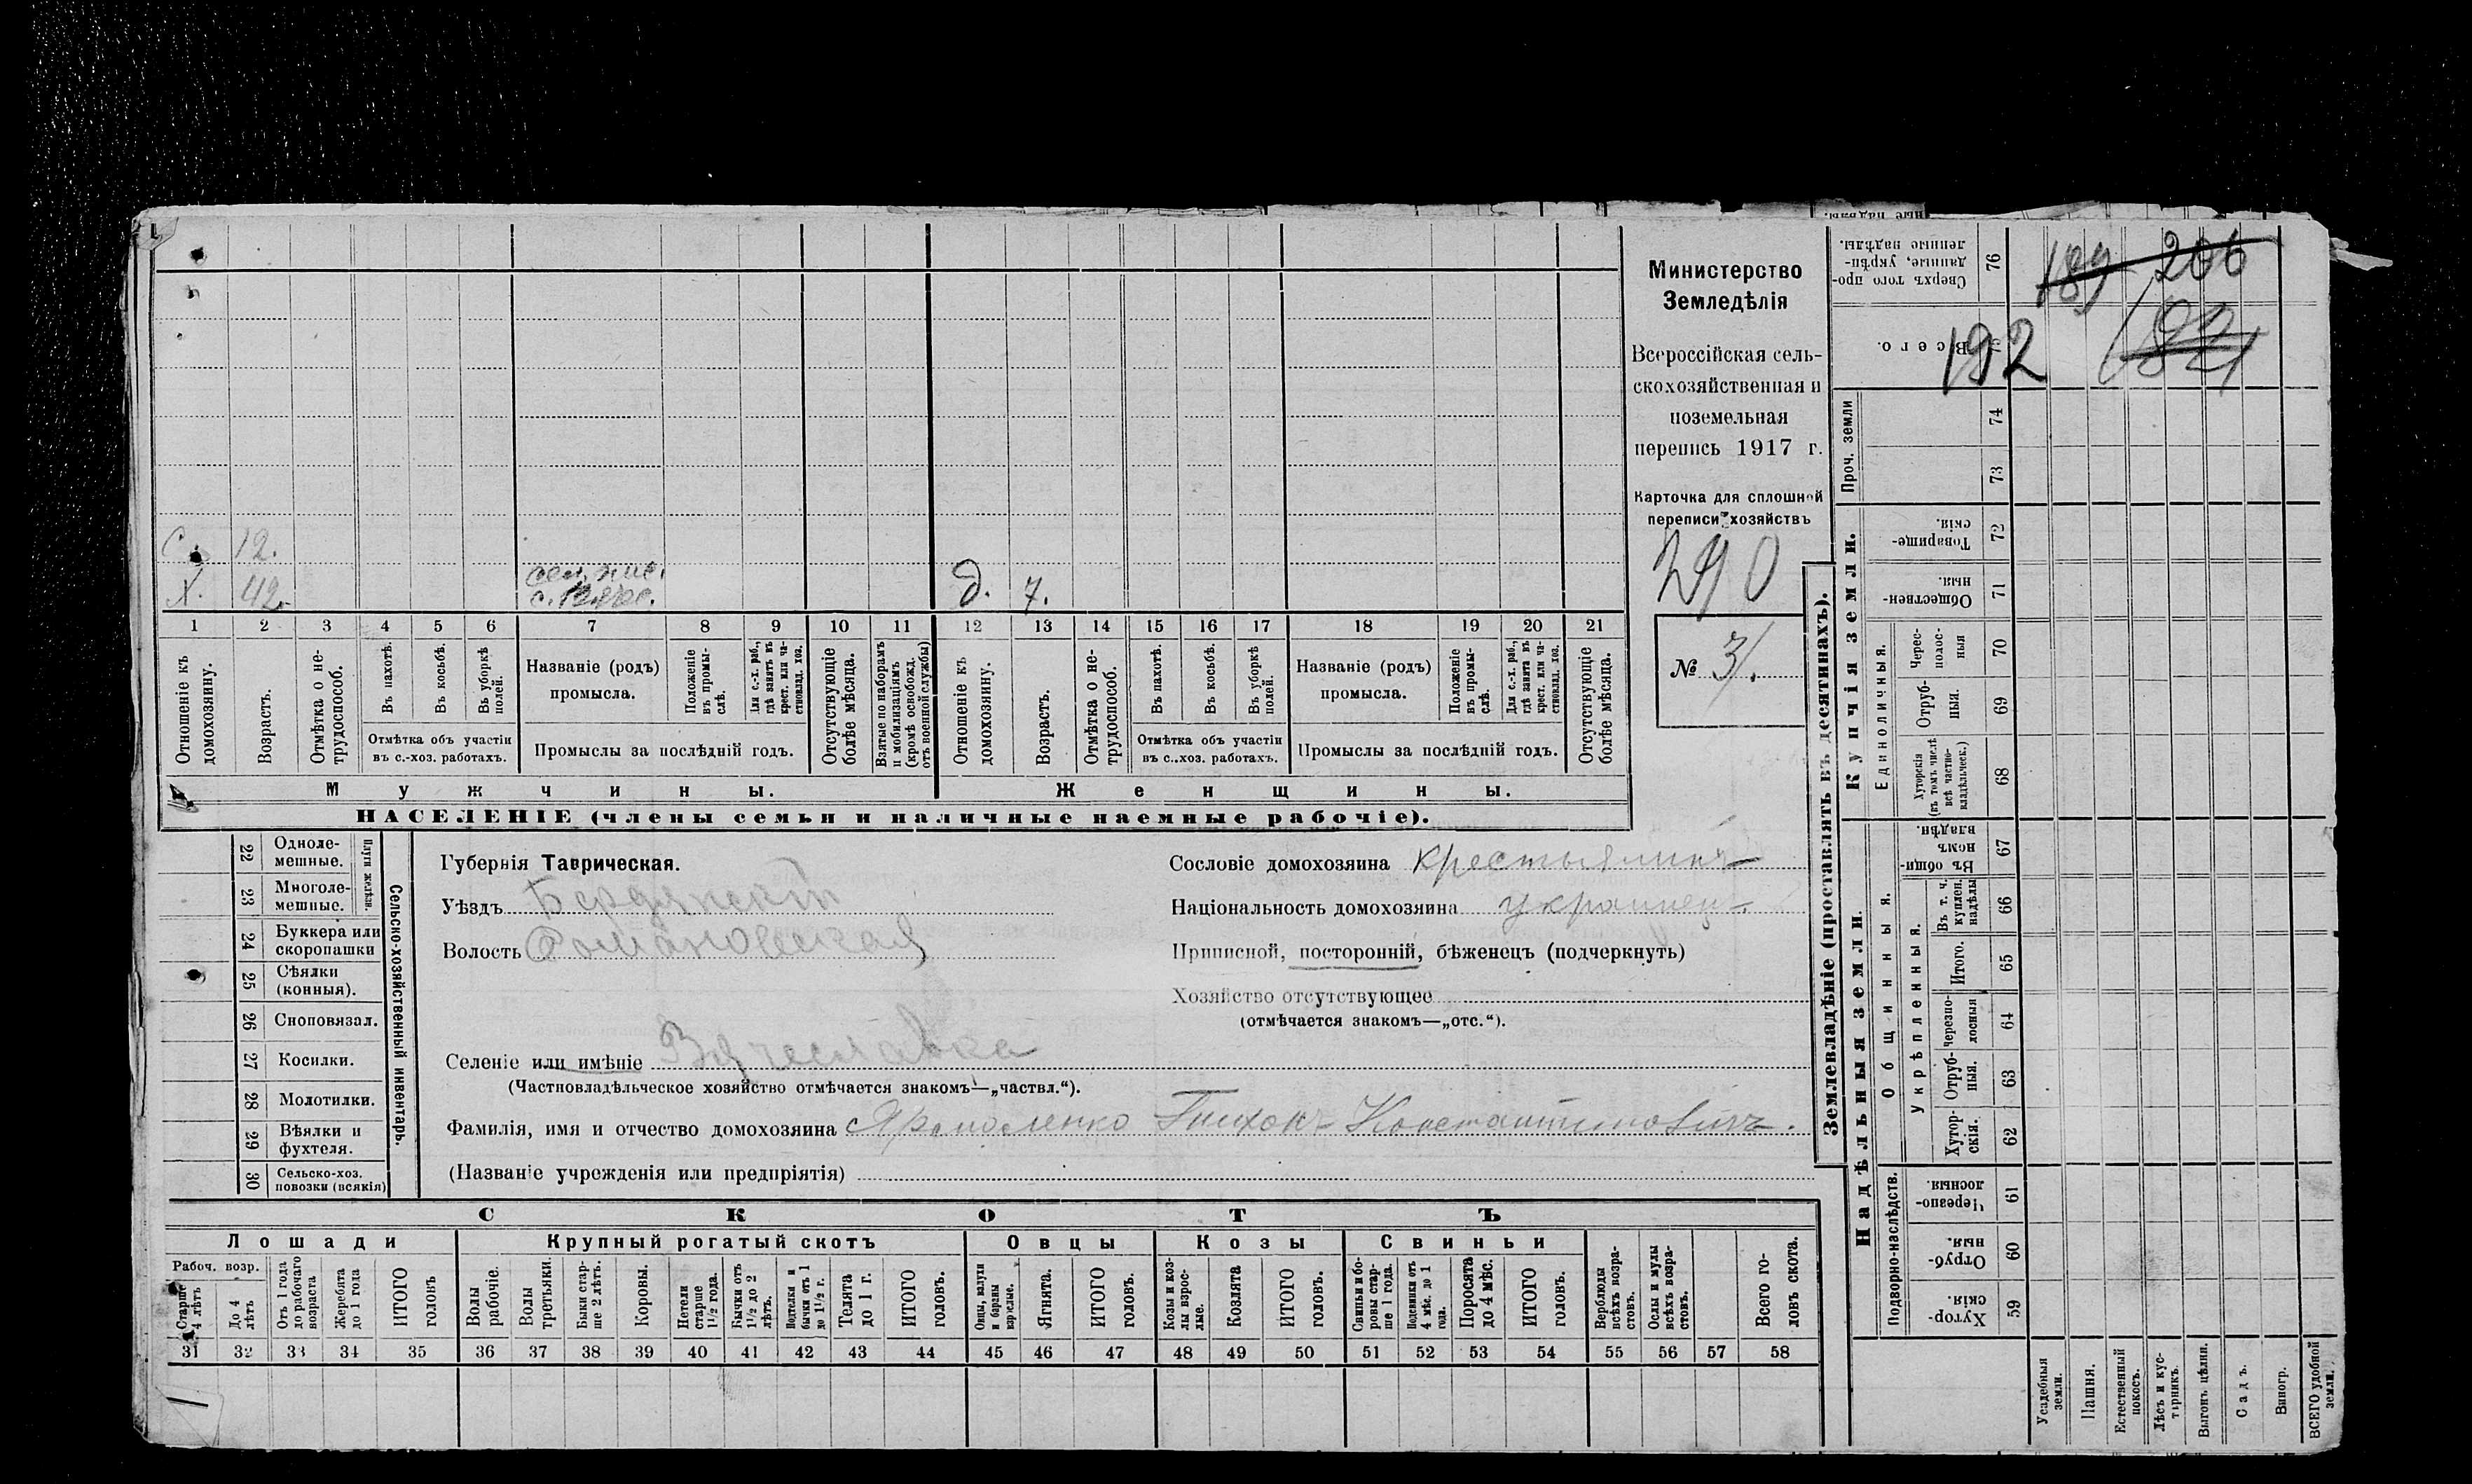 189 206
192
С. 12.
Х. 42. сел. хис. д. 7.
1 2 3 4 5 6 7 8 9 10 11 12 13 14 15 16 17 18 19 20 21
Отношеніе къ домохозяину.
Возрастъ.
Отмѣтка о не-
трудоспособ.
Въ пахотѣ.
Въ косьбѣ.
Въ уборкѣ
полей.
Отмѣтка объ участіи
въ с.-хоз. работахъ.
Названіе (родъ)
промысла.
Положеніе
въ промы-
слѣ.
Для с.-х. раб.,
гдѣ занятъ въ
крест. или ча-
стновлад. хоз.
Промыслы за послѣдній годъ.
Отсутствующіе
болѣе мѣсяца.
Взятые по наборамъ
и мобилизаціямъ
(кромѣ освобожд.
отъ военной службы)
Отношеніе къ
домохозяину.
Возрастъ.
Отмѣтка о не-
трудоспособ.
Въ пахотѣ.
Въ косьбѣ.
Въ уборкѣ
полей.
Отмѣтка объ участіи
въ с..хоз. работахъ.
Названіе (родъ)
промысла.
Положеніе
въ промы-
слѣ.
Для с.-х. раб.,
гдѣ занята въ
крест. или ча-
стновлад. хоз.
Промыслы за послѣдній годъ.
Отсутствующіе
болѣе мѣсяца.
Мужчины.
Женщины.
НАСЕЛЕНІЕ (члены семьи и наличные наемные рабочіе).
Министерство
Земледѣлія
Всероссійская сель-
скохозяйственная и
поземельная
перепись 1917 г.
Карточка для сплошной
переписи хозяйствъ
290
№ 31.
22 Одноле-
мешные.
23 Многоле-
мешные.
Плуги желѣзн.
24 Буккера или
скоропашки
25 Сѣялки
(конныя).
26 Сноповязал.
27 Косилки.
28 Молотилки.
29 Вѣялки и
фухтеля.
30 Сельско-хоз.
повозки (всякія)
Сельско-хозяйственный инвентарь.
Губернія Таврическая.
Уѣздъ Бердянскій
Волость Романовская
Селеніе или имѣніе Вячеславка
(Частновладѣльческое хозяйство отмѣчается знакомъ—„частвл.“).
Фамилія, имя и отчество домохозяина Ярмоленко Тихон Константиновичъ.
(Названіе учрежденія или предпріятія)
Сословіе домохозяина крестьянинъ
Національность домохозяина украинец.
Приписной, посторонній, бѣженецъ (подчеркнуть)
Хозяйство отсутствующее
(отмѣчается знакомъ—„отс.“).
СКОТЪ
Лошади
Крупный рогатый скотъ
Овцы
Козы
Свиньи
Рабоч. возр.
Старше
4 лѣтъ
До 4
лѣтъ
Отъ 1 года
до рабочаго
возраста
Жеребята
до 1 года
ИТОГО
головъ
Волы
рабочіе.
Волы
третьяки.
Быки стар-
ше 2 лѣтъ.
Коровы.
Нетели
старше
1½ года.
Бычки отъ
1½ до 2
лѣтъ.
Подтелки и
бычки отъ 1
до 1½ г.
Телята
до 1 г.
ИТОГО
головъ.
Овцы, валухи
и бараны
взрослые.
Ягнята.
ИТОГО
головъ.
Козы и коз-
лы взрос-
лые.
Козлята
ИТОГО
головъ.
Свиньи и бо-
ровы стар-
ше 1 года.
Подсвинки отъ
4 мѣс. до 1
года.
Поросята
до 4 мѣс.
ИТОГО
головъ.
Верблюды
всѣхъ возра-
стовъ.
Ослы и мулы
всѣхъ возра-
стовъ.
Всего го-
ловъ скота.
31 32 33 34 35 36 37 38 39 40 41 42 43 44 45 46 47 48 49 50 51 52 53 54 55 56 57 58
Землевладѣніе (проставлять въ десятинахъ).
Сверхъ того про-
данные, укрѣп-
ленные надѣлы.
76
Всего.
Проч. земли
74
73
Купчія земли.
Товарище-
скія.
72
Обществен-
ныя.
71
Единоличныя.
Черес-
полос-
ныя
70
Отруб-
ныя.
69
Хуторскія
(въ томъ числѣ
всѣ частно-
владѣльческ.)
68
Надѣльныя земли.
Общинныя.
Въ общин-
номъ
владѣн.
67
Укрѣпленныя.
Въ т. ч.
куплен.
надѣлы
66
Итого.
65
Черезпо-
лосныя
64
Отруб-
ныя.
63
Хутор-
скія.
62
Подворно-наслѣдств.
Черезпо-
лосныя.
61
Отруб-
ныя.
60
Хутор-
скія.
59
Усадебныя
земли.
Пашня.
Естественный
покосъ.
Лѣсъ и кус-
тарникъ.
Выгонъ цѣлин.
Садъ.
Виногр.
ВСЕГО удобной
земли.